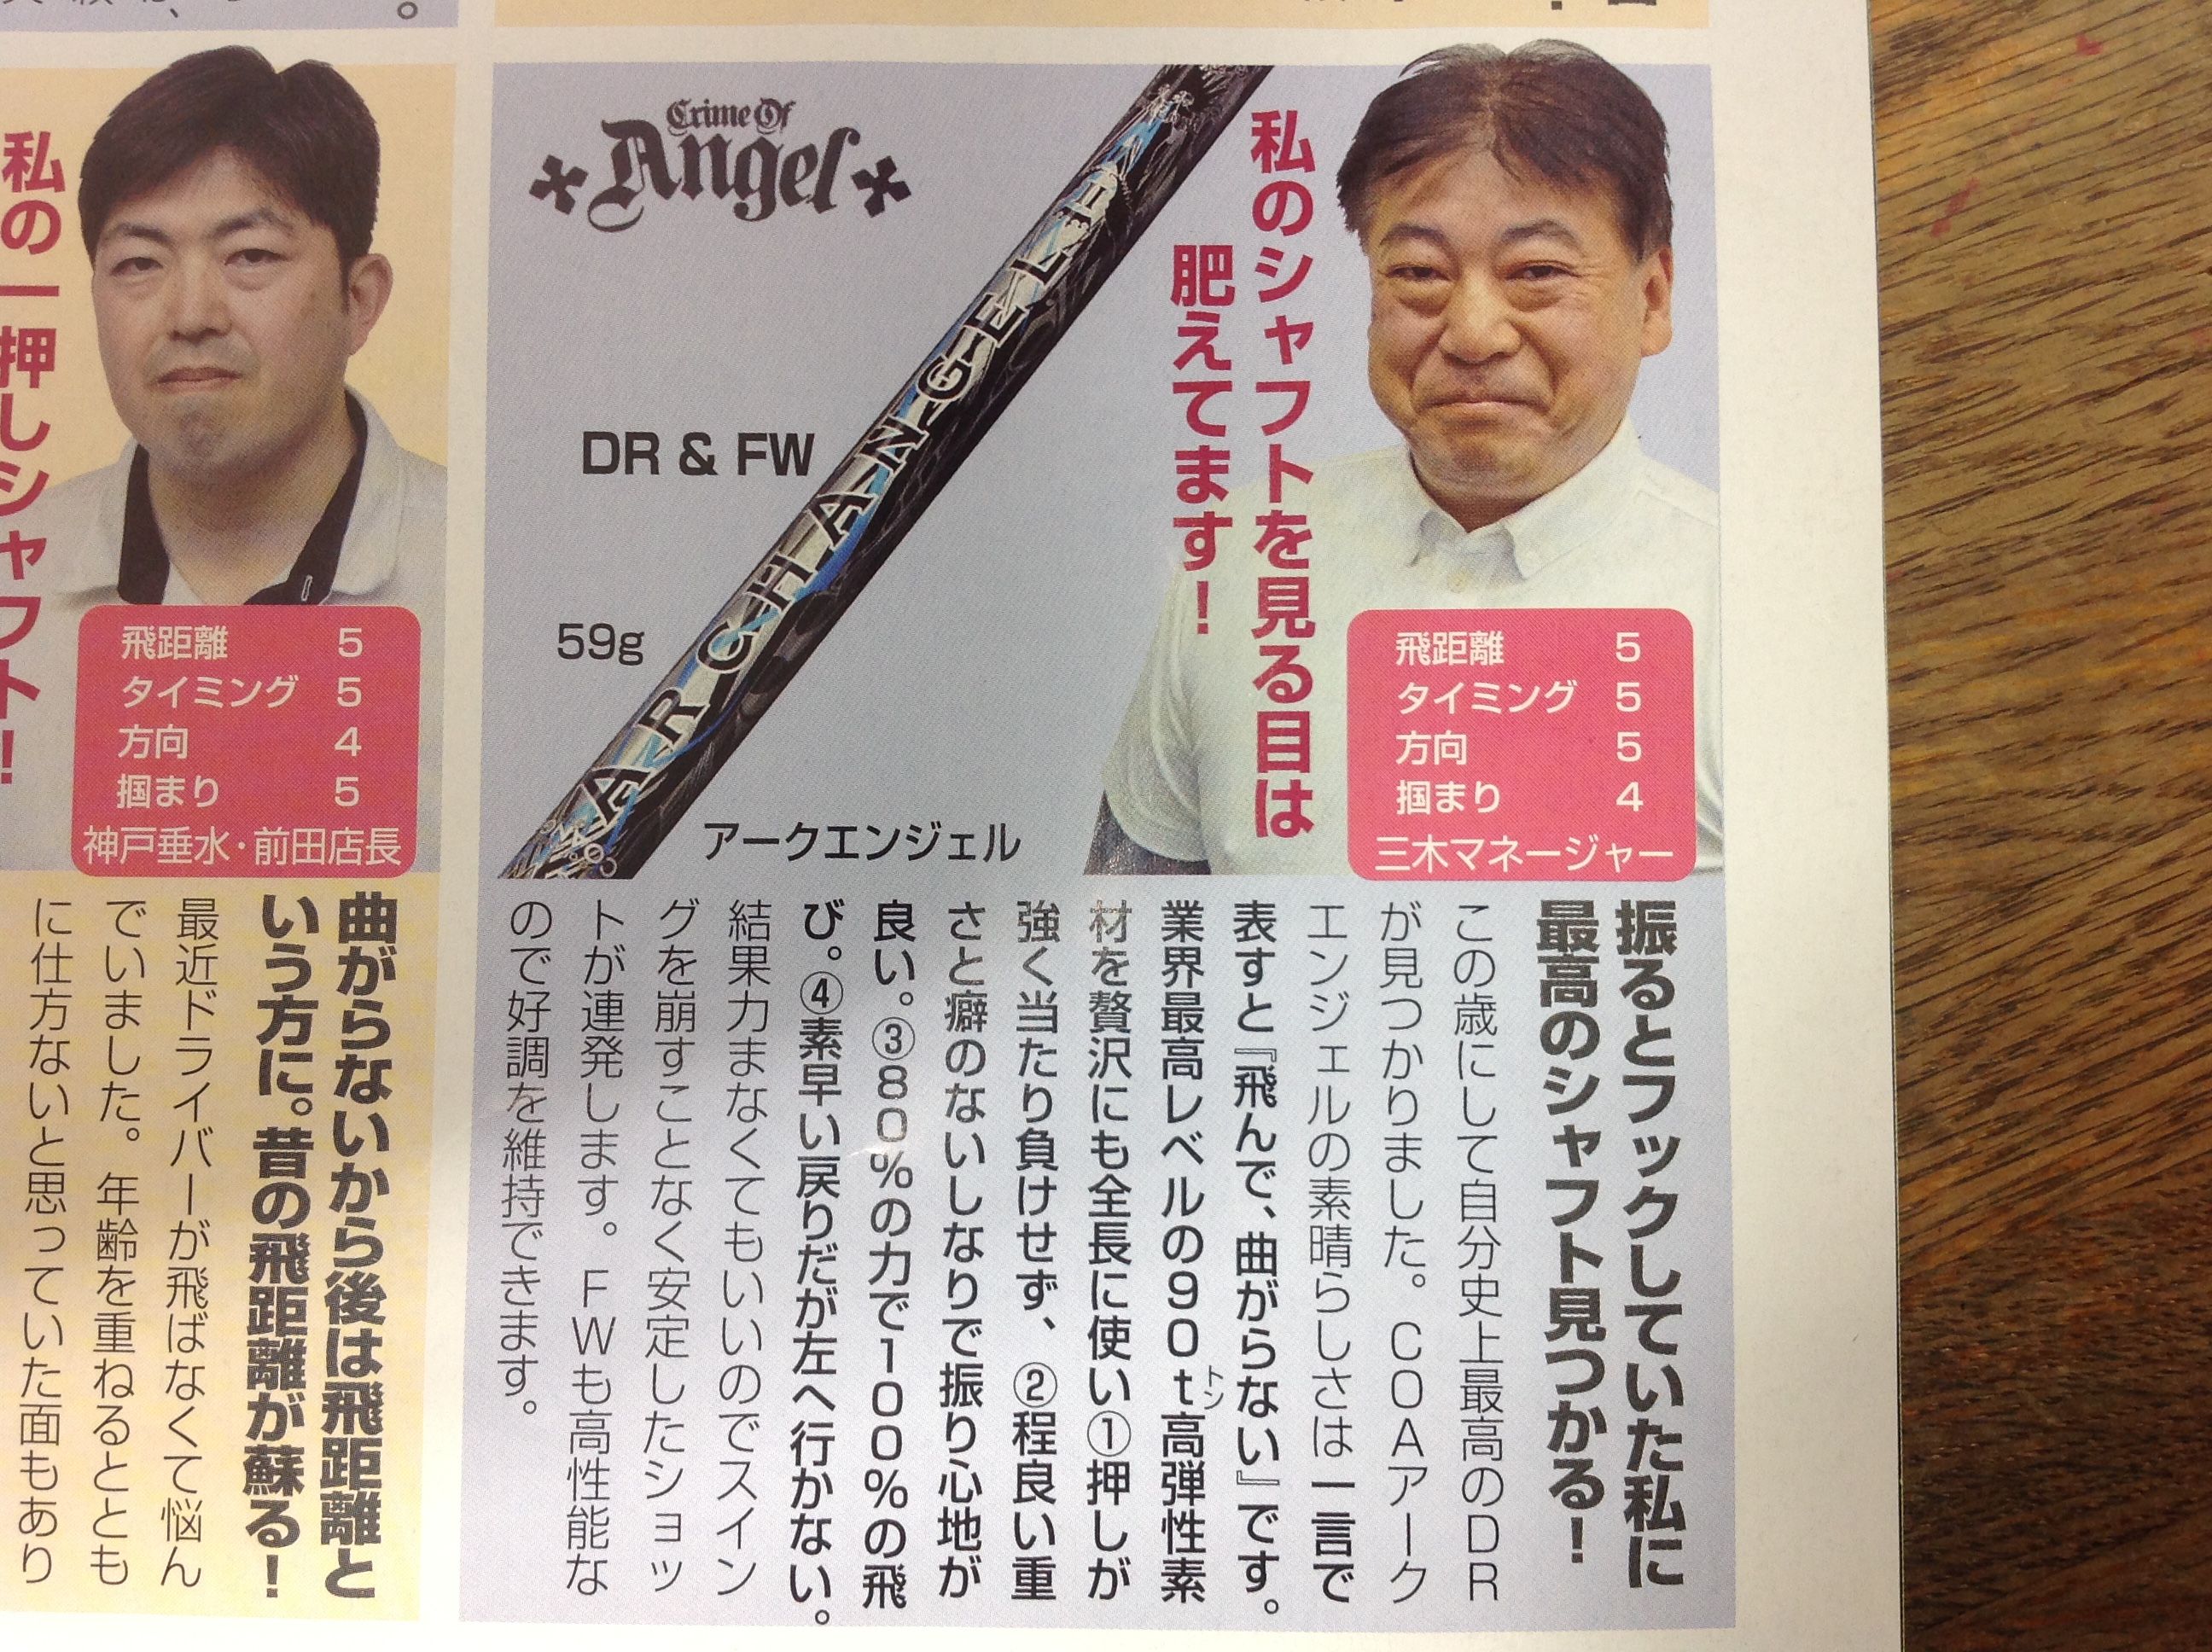 Crime Of
Angel
DR & FW
59g
ARCHANGEL
アークエンジェル
私のシャフトを見る目は
肥えてます！
飛距離 5
タイミング 5
方向 5
掴まり 4
三木マネージャー
振るとフックしていた私に
最高のシャフト見つかる！
この歳にして自分史上最高のDR
が見つかりました。COAアーク
エンジェルの素晴らしさは一言で
表すと『飛んで、曲がらない』です。
業界最高レベルの90t高弾性素
トン
材を贅沢にも全長に使い①押しが
強く当たり負けせず、②程良い重
さと癖のないしなりで振り心地が
良い。③80％の力で100％の飛
び。④素早い戻りだが左へ行かない。
結果力まなくてもいいのでスイン
グを崩すことなく安定したショッ
トが連発します。FWも高性能な
ので好調を維持できます。
私の一押しシャフト！
飛距離 5
タイミング 5
方向 4
掴まり 5
神戸垂水・前田店長
曲がらないから後は飛距離と
いう方に。昔の飛距離が蘇る！
最近ドライバーが飛ばなくて悩ん
でいました。年齢を重ねるととも
に仕方ないと思っていた面もあり